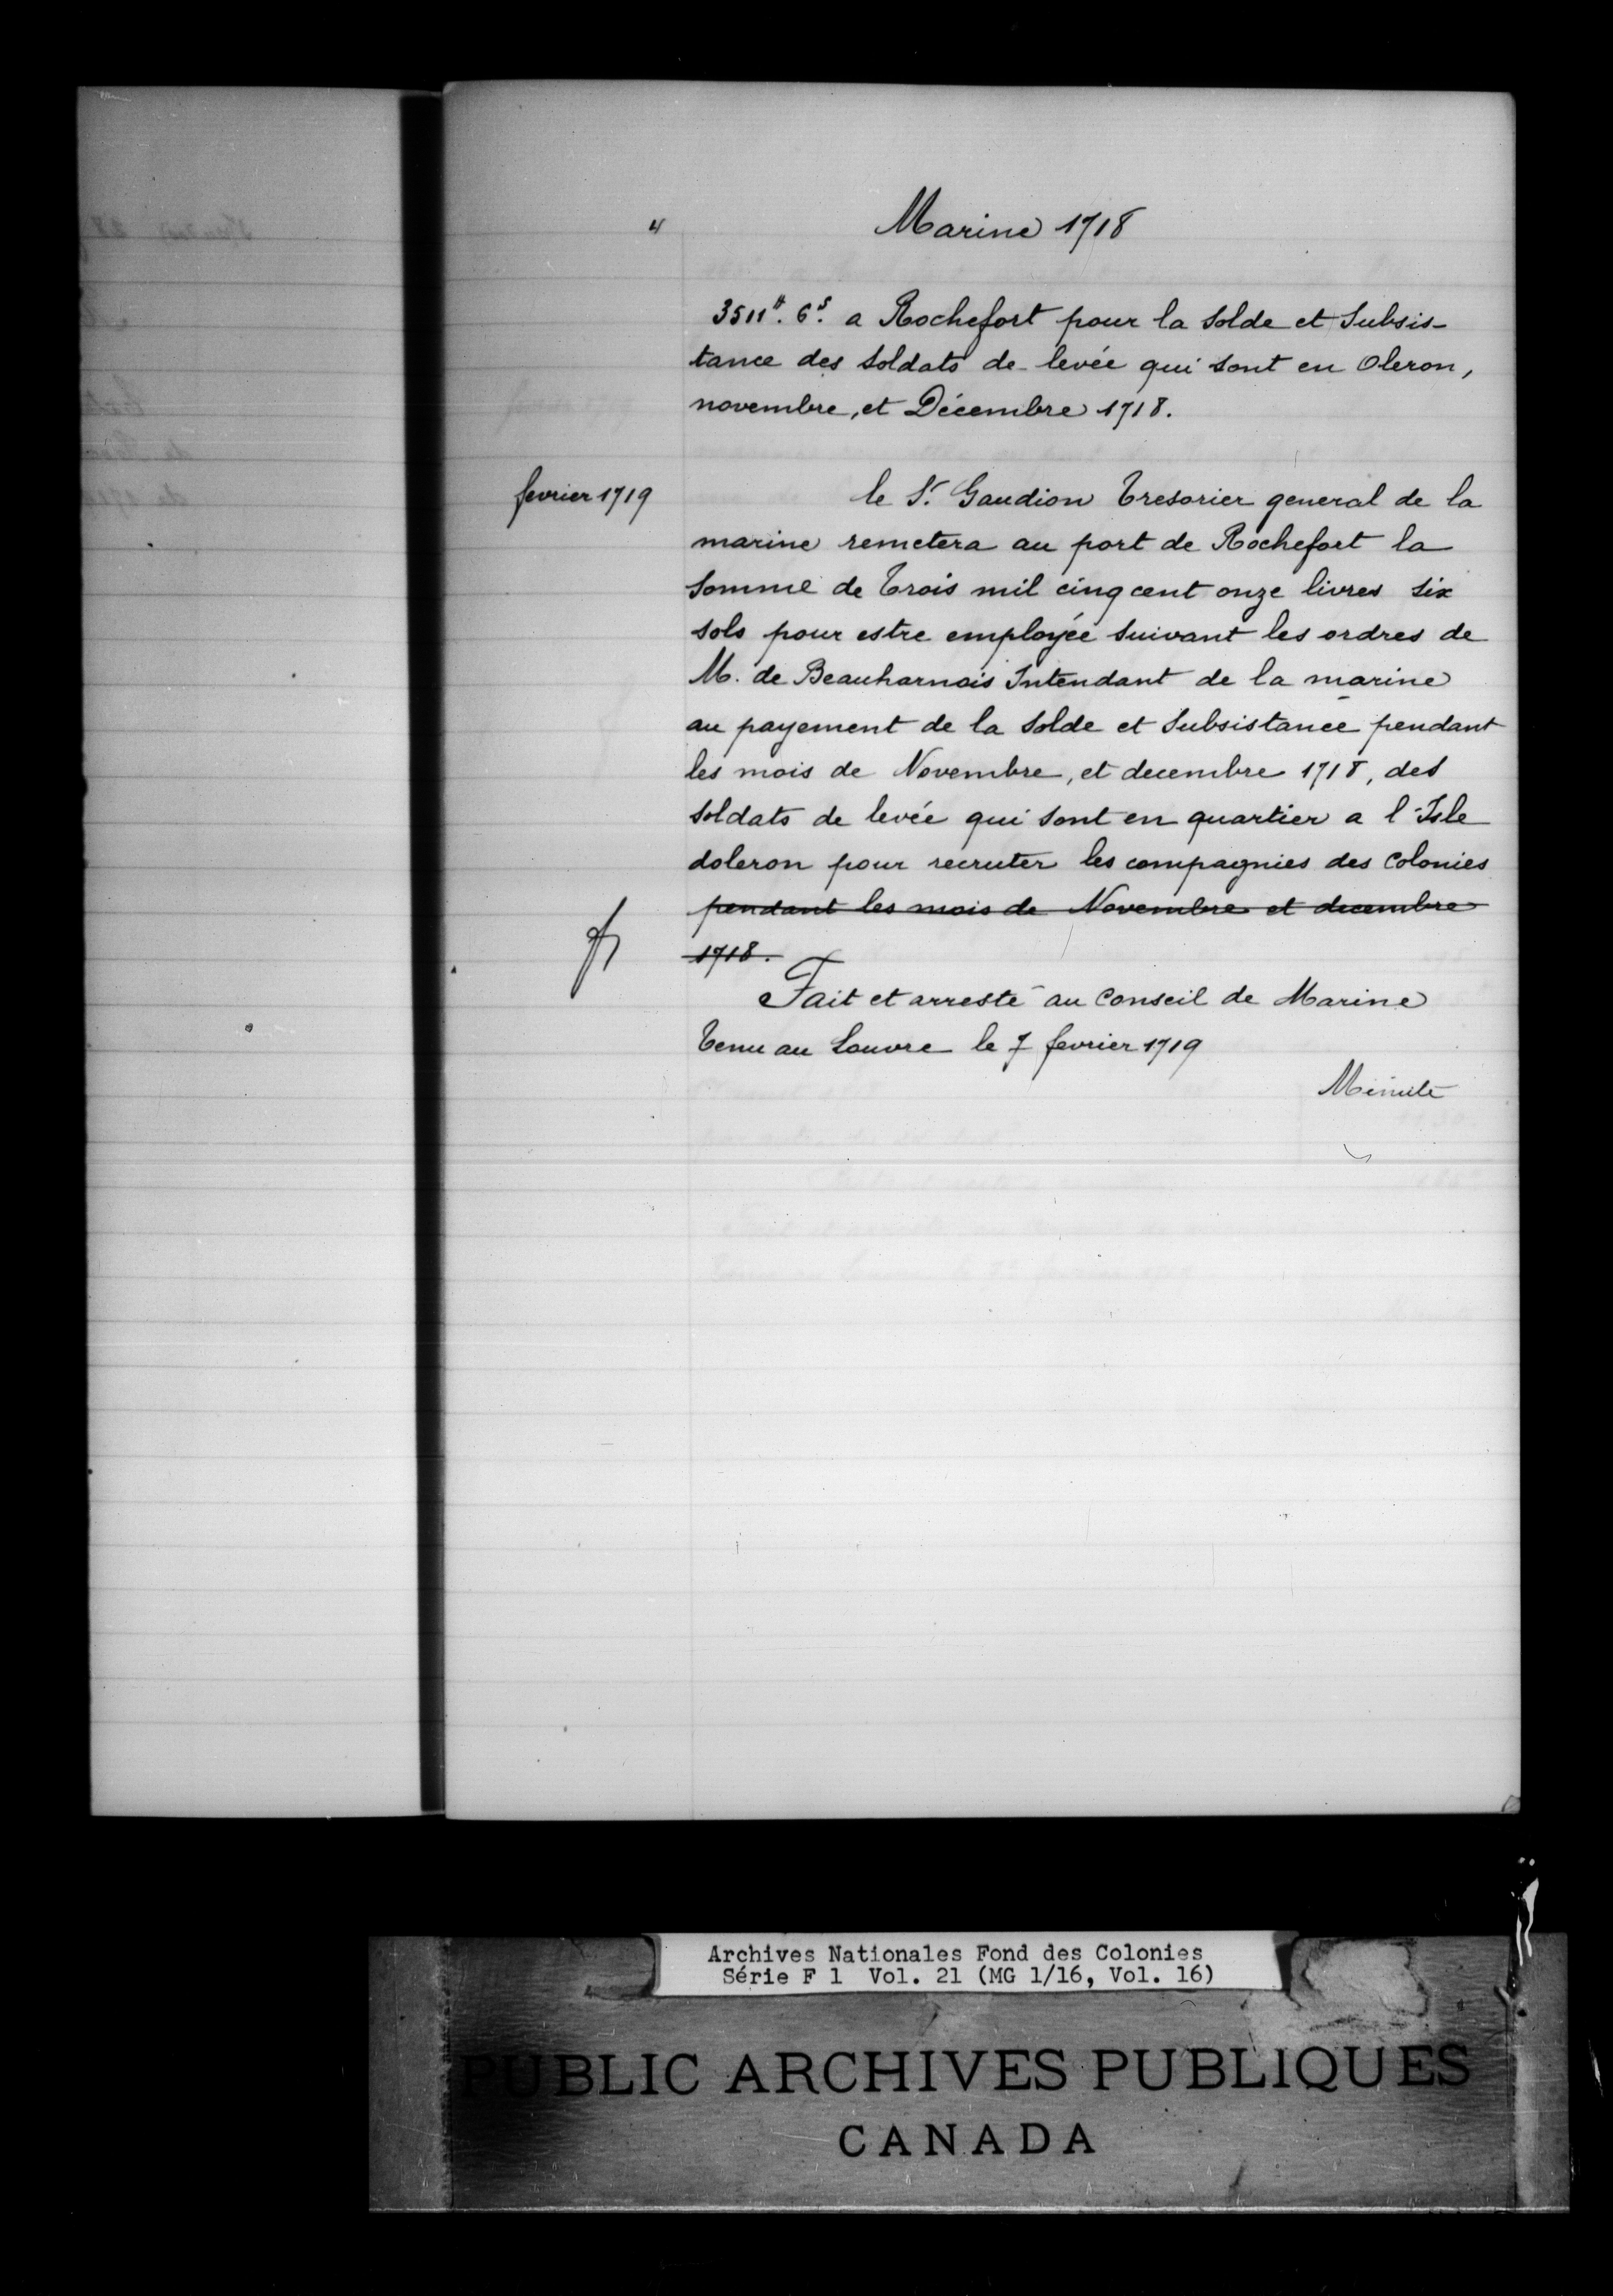 4
Marine 1718
3511ᵗᵗ. 6ˢ. a Rochefort pour la solde et Subsis-
tance des soldats de levée qui sont en Oleron,
novembre, et Décembre 1718.
fevrier 1719
le Sʳ. Gaudion Tresorier general de la
marine remetera au port de Rochefort la
somme de Trois mil cinq cent onze livres six
sols pour estre employée suivant les ordres de
M. de Beauharnois Intendant de la marine
au payement de la solde et Subsistance pendant
les mois de Novembre, et decembre 1718, des
soldats de levée qui sont en quartier a l'Isle
doleron pour recruter les compagnies des Colonies
pendant les mois de Novembre et decembre
1718.
Fait et arresté au Conseil de Marine
Tenu au Louvre le 7 fevrier 1719
Minute
Archives Nationales Fond des Colonies
Série F 1 Vol. 21 (MG 1/16, Vol. 16)
PUBLIC ARCHIVES PUBLIQUES
CANADA